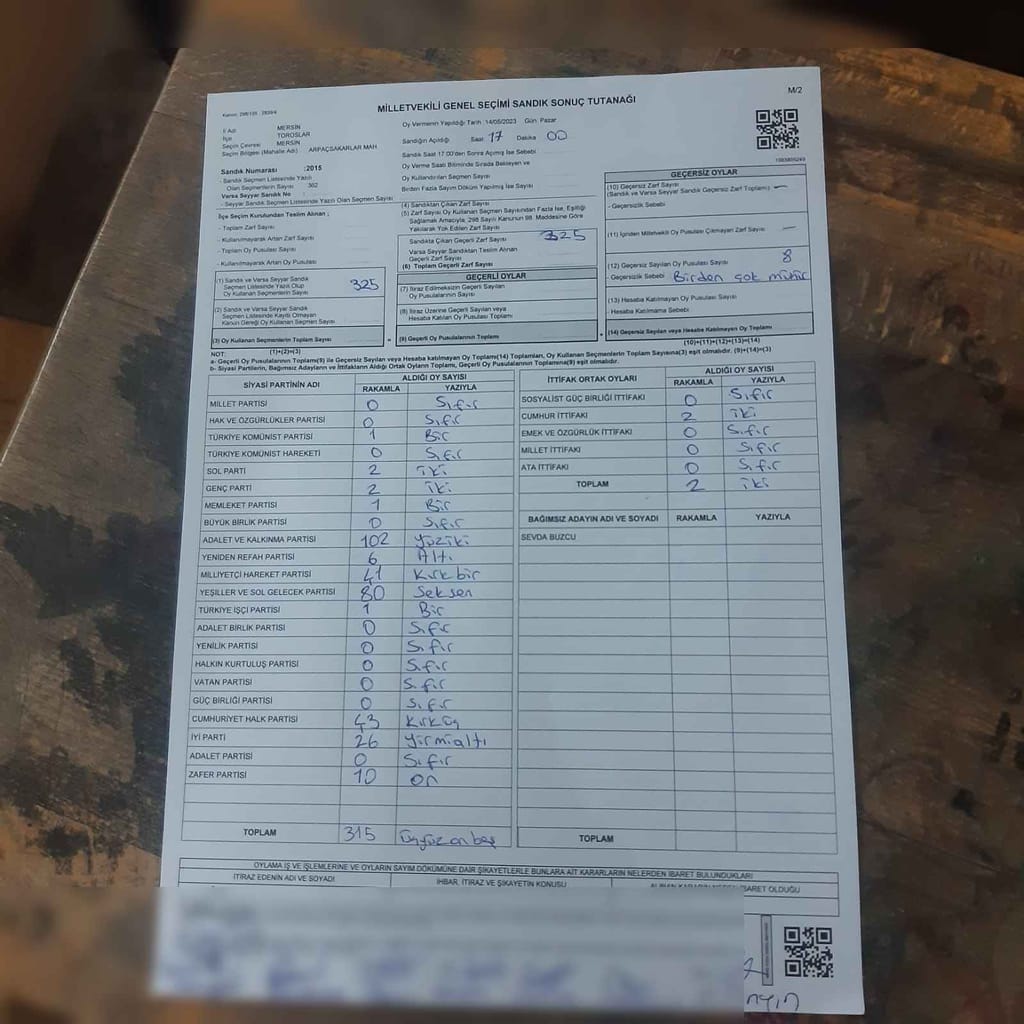 M/2
MİLLETVEKİLİ GENEL SEÇİMİ SANDIK SONUÇ TUTANAĞI
İl Adı MERSİN
İlçe TOROSLAR
Seçim Çevresi MERSİN
Seçim Bölgesi (Mahalle Adı) ARPAÇSAKARLAR MAH.
Sandık Numarası :2015
- Sandık Seçmen Listesinde Yazılı
Olan Seçmenlerin Sayısı 362
Varsa Seyyar Sandık No :
- Seyyar Sandık Seçmen Listesinde Yazılı Olan Seçmen Sayısı
İlçe Seçim Kurulundan Teslim Alınan ;
- Toplam Zarf Sayısı
- Kullanılmayarak Artan Zarf Sayısı
- Toplam Oy Pusulası Sayısı
- Kullanılmayarak Artan Oy Pusulası
(1) Sandık ve Varsa Seyyar Sandık
Seçmen Listesinde Yazılı Olup
Oy Kullanan Seçmenlerin Sayısı 325
(2) Sandık ve Varsa Seyyar Sandık
Seçmen Listesinde Kaydı Olmayan
Kanun Gereği Oy Kullanan Seçmen Sayısı
(3) Oy Kullanan Seçmenlerin Toplam Sayısı =
(1)+(2)=(3)
Oy Vermenin Yapıldığı Tarih :14/05/2023 Gün: Pazar
Sandığın Açıldığı Saat 17 Dakika 00
Sandık Saat 17:00'den Sonra Açılmış İse Sebebi
Oy Verme Saati Bitiminde Sırada Bekleyen ve
Oy Kullandırılan Seçmen Sayısı
Birden Fazla Sayım Döküm Yapılmış İse Sayısı
(4) Sandıktan Çıkan Zarf Sayısı
(5) Zarf Sayısı Oy Kullanan Seçmen Sayısından Fazla İse, Eşitliği
Sağlamak Amacıyla, 298 Sayılı Kanunun 98. Maddesine Göre
Yakılarak Yok Edilen Zarf Sayısı
Sandıkta Çıkan Geçerli Zarf Sayısı 325
Varsa Seyyar Sandıktan Teslim Alınan
Geçerli Zarf Sayısı
(6) Toplam Geçerli Zarf Sayısı
GEÇERLİ OYLAR
(7) İtiraz Edilmeksizin Geçerli Sayılan
Oy Pusulalarının Sayısı
(8) İtiraz Üzerine Geçerli Sayılan veya
Hesaba Katılan Oy Pusulası Toplamı
(9) Geçerli Oy Pusulalarının Toplamı +
GEÇERSİZ OYLAR
(10) Geçersiz Zarf Sayısı
(Sandık ve Varsa Seyyar Sandık Geçersiz Zarf Toplamı) —
- Geçersizlik Sebebi
(11) İçinden Milletvekili Oy Pusulası Çıkmayan Zarf Sayısı —
(12) Geçersiz Sayılan Oy Pusulası Sayısı 8
- Geçersizlik Sebebi Birden çok mühür
(13) Hesaba Katılmayan Oy Pusulası Sayısı
- Hesaba Katılmama Sebebi
(14) Geçersiz Sayılan veya Hesaba Katılmayan Oy Toplamı
(10)+(11)+(12)+(13)=(14)
NOT:
a- Geçerli Oy Pusulalarının Toplamı(9) ile Geçersiz Sayılan veya Hesaba katılmayan Oy Toplam(14) Toplamları, Oy Kullanan Seçmenlerin Toplam Sayısına(3) eşit olmalıdır. (9)+(14)=(3)
b- Siyasi Partilerin, Bağımsız Adayların ve İttifakların Aldığı Ortak Oyların Toplamı, Geçerli Oy Pusulalarının Toplamına(9) eşit olmalıdır.
SİYASİ PARTİNİN ADI ALDIĞI OY SAYISI
RAKAMLA YAZIYLA
MİLLET PARTİSİ 0 Sıfır
HAK VE ÖZGÜRLÜKLER PARTİSİ 0 Sıfır
TÜRKİYE KOMÜNİST PARTİSİ 1 Bir
TÜRKİYE KOMÜNİST HAREKETİ 0 Sıfır
SOL PARTİ 2 iki
GENÇ PARTİ 2 iki
MEMLEKET PARTİSİ 1 Bir
BÜYÜK BİRLİK PARTİSİ 0 Sıfır
ADALET VE KALKINMA PARTİSİ 102 Yüziki
YENİDEN REFAH PARTİSİ 6 Altı
MİLLİYETÇİ HAREKET PARTİSİ 41 Kırkbir
YEŞİLLER VE SOL GELECEK PARTİSİ 80 Seksen
TÜRKİYE İŞÇİ PARTİSİ 1 Bir
ADALET BİRLİK PARTİSİ 0 Sıfır
YENİLİK PARTİSİ 0 Sıfır
HALKIN KURTULUŞ PARTİSİ 0 Sıfır
VATAN PARTİSİ 0 Sıfır
GÜÇ BİRLİĞİ PARTİSİ 0 Sıfır
CUMHURİYET HALK PARTİSİ 43 Kırküç
İYİ PARTİ 26 Yirmialtı
ADALET PARTİSİ 0 Sıfır
ZAFER PARTİSİ 10 on
TOPLAM 315 üçyüzonbeş
İTTİFAK ORTAK OYLARI ALDIĞI OY SAYISI
RAKAMLA YAZIYLA
SOSYALİST GÜÇ BİRLİĞİ İTTİFAKI 0 Sıfır
CUMHUR İTTİFAKI 2 iki
EMEK VE ÖZGÜRLÜK İTTİFAKI 0 Sıfır
MİLLET İTTİFAKI 0 Sıfır
ATA İTTİFAKI 0 Sıfır
TOPLAM 2 iki
BAĞIMSIZ ADAYIN ADI VE SOYADI RAKAMLA YAZIYLA
SEVDA BUZCU
TOPLAM
OYLAMA İŞ VE İŞLEMLERİNE VE OYLARIN SAYIM DÖKÜMÜNE DAİR ŞİKAYETLERLE BUNLARA AİT KARARLARIN NELERDEN İBARET BULUNDUKLARI
İTİRAZ EDENİN ADI VE SOYADI İHBAR, İTİRAZ VE ŞİKAYETİN KONUSU İBARET OLDUĞU